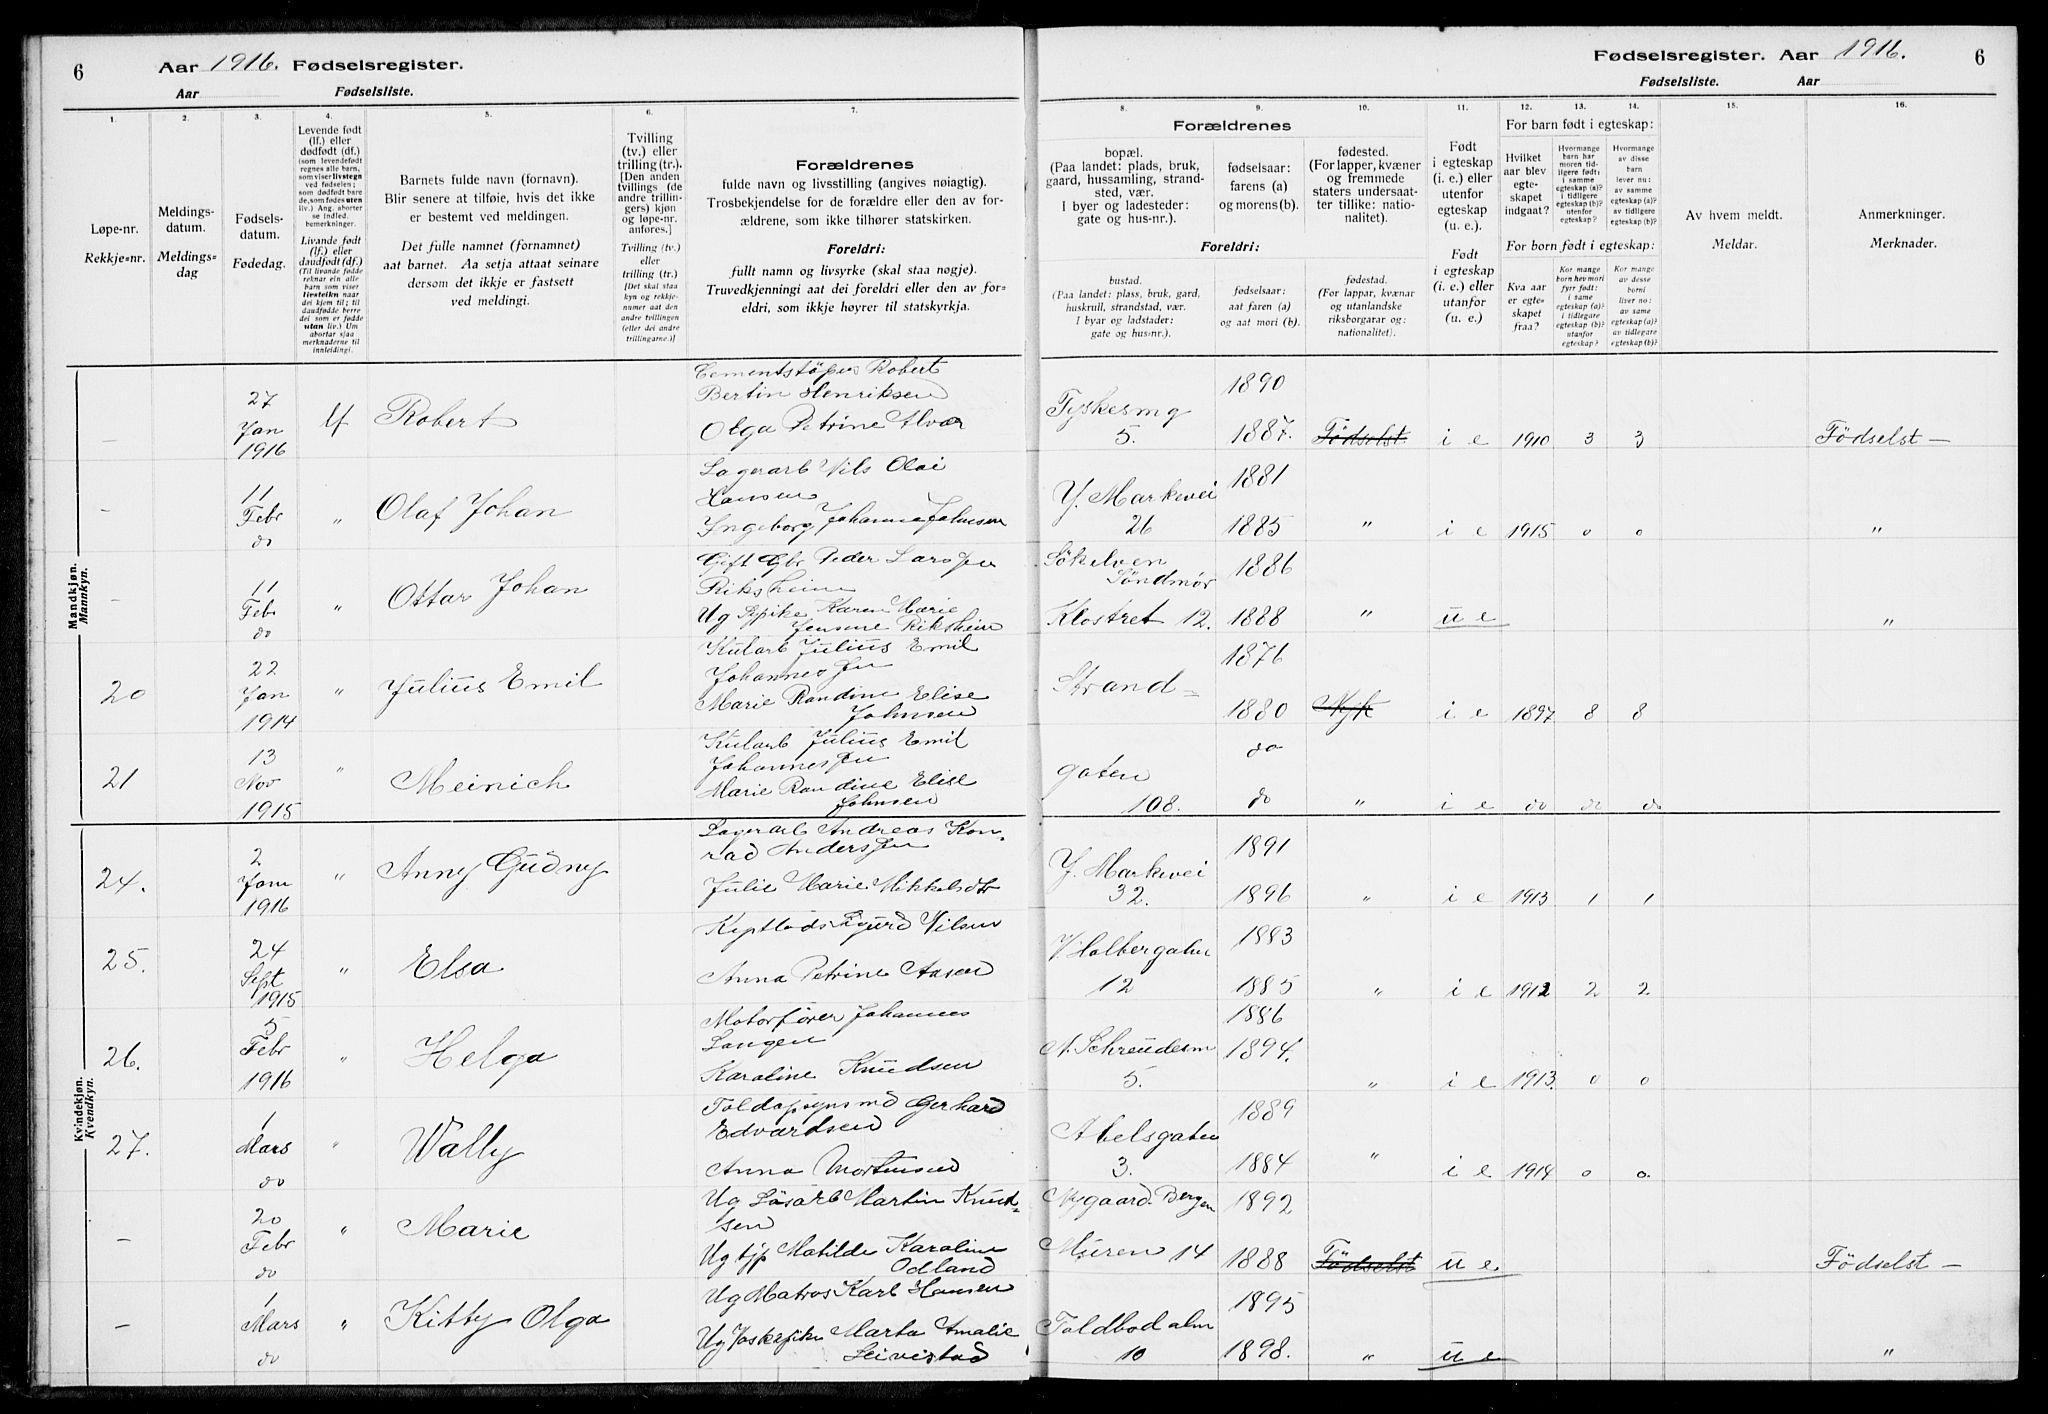 6 Aar 1916. Fødselsregister.
Aar Fødselsliste.
Fødselsregister. Aar 1916. 6
Fødselsliste. Aar
1. 2. 3. 4. 5. 6. 7.
Løpe-nr.
Rekkje=nr.
Meldings-
datum.
Meldings=
dag
Fødsels-
datum.
Fødedag.
Levende født
(lf.) eller
dødfødt (df.)
(som levendefødt
regnes alle barn,
som viser livstegn
ved fødselen;
som dødfødt bare
de, som fødes uten
liv.) Ang. aborter
se indled.
bemerkninger.
Livande født
(lf.) eller
daudfødt (df.)
(Til livande fødde
reknar ein alle
barn som viser
livsteikn naar
dei kjem til; til
daudfødde berre
dei som er fødde
utan liv.) Um
abortar sjaa
merknaderne til
innleidingi.
Barnets fulde navn (fornavn).
Blir senere at tilføie, hvis det ikke
er bestemt ved meldingen.
Det fulle namnet (fornamnet)
aat barnet. Aa setja attaat seinare
dersom det ikkje er fastsett
ved meldingi.
Tvilling
(tv.) eller
trilling (tr.).
[Den anden
tvillings (de
andre trillin-
gers) kjøn
og løpe-nr.
anføres.]
Tvilling (tv.)
eller
trilling (tr.)
[Det skal staa
kyn og rekkje-
numer aat den
andre tvillingen
(eller dei andre
trillingarne.)]
Forældrenes
fulde navn og livsstilling (angives nøiagtig).
Trosbekjendelse for de forældre eller den av for-
ældrene, som ikke tilhører statskirken.
Foreldri:
fullt namn og livsyrke (skal staa nøgje).
Truvedkjenningi aat dei foreldri eller den av for-
eldri, som ikkje høyrer til statskyrkja.
8. 9. 10. 11. 12. 13. 14. 15. 16.
Forældrenes
bopæl.
(Paa landet: plads, bruk,
gaard, hussamling, strand-
sted, vær.
I byer og ladesteder:
gate og hus-nr.).
Foreldri:
bustad.
(Paa landet: plass, bruk, gard,
huskrull, strandstad, vær.
I byar og ladstader:
gate og hus-nr.).
fødselsaar:
farens (a)
og morens (b).
fødselsaar:
aat faren (a)
og aat mori (b).
fødested.
(For lapper, kvæner
og fremmede
staters undersaat-
ter tillike: natio-
nalitet).
fødestad.
(For lappar, kvænar
og utanlandske
riksborgarar og:
nationalitet).
Født
i egteskap
(i. e.) eller
utenfor
egteskap
(u. e.).
Født
i egteskap
(i. e.) eller
utanfor
egteskap
(u. e.).
For barn født i egteskap:
Hvilket
aar blev
egte-
skapet
indgaat?
Hvormange
barn har
moren tid-
ligere født:
i samme
egteskap (a)?
i tidligere
egteskap (b)?
utenfor
egteskap?
Hvormange
av disse
barn
lever nu:
av samme
egteskap (a)?
av tidligere
egteskap (b)?
For born født i egteskap:
Kva aar
er egte-
skapet
fraa?
Kor mange
born hev mori
fyrr født:
i same
egteskap (a)?
i tidlegare
egteskap (b)?
utanfor
egteskap?
Kor mange
av desse
borni
liver no:
av same
egteskap (a)?
av tidlegare
egteskap (b)?
Av hvem meldt.
Meldar.
Anmerkninger.
Merknader.
Mandkjøn.
Mannkyn.
- 27 Jan 1916 lf Robert
Cementstøper Robert
Bertin Henriksen
Olga Petrine Alvær
Tyskesmg 5. 1890 1887. Fødselst i e 1910 3 3 Fødselst -
- 11 Febr do " Olaf Johan
Lagerarb Nils Olai
Hansen
Ingeborg Johanne Johnsen
Y. Markevei 26 1881 1885 " i e 1915 0 0 "
- 11 Feb do " Ottar Johan
Gift Gbr Peder Larssen
Riksheim
Ug Pike Karen Marie
Jensine Riksheim
Søkelven Søndmør 1886
Klostret 12. 1888 " u e "
20 22 Jan 1914 " Julius Emil
Kularb Julius Emil
Johannessen
Marie Randine Elise
Johnsen
Strand= 1876 1880 i e 1897 8 8
21 13 Nov 1915 " Meinich
Kularb Julius Emil
Johannessen
Marie Randine Elise
Johnsen
gaten 108. do do " i e do do do
Kvindekjøn.
Kvendkyn.
24. 2 Jan 1916 " Anny Gudny
Lagerarb Andreas Kon-
rad Anderssen
Julie Marie Mikkelsdtr
Y. Markevei 32. 1891 1896 " i e 1913 1 1
25. 24 Sept 1915 " Elsa
Kyptlods Sigurd Nilsen
Anna Petrine Aasen
V Holbergaten 12 1883 1885 " i e 1912 2 2
26. 5 Febr 1916 " Helga
Motorfører Johannes
Langen
Karoline Knudsen
N. Schreudesm 5. 1886 1894. " i e 1913. 0 0
27. 1 Mars do " Wally
Toldopsynsmd Gerhard
Edvardsen
Anna Mortensen
Abelsgaten 3. 1889 1884 " i e 1914 0 0.
- 20 Febr do " Marie
Ug Løsarb Martin Knud=
sen
Ug tjp Matilde Karoline
Odland
Nygaard. Bergen 1892
Muren 14 1888 Fødselst u e Fødselst -
- 1 Mars do " Kitty Olga
Ug Matros Karl Hansen
Ug Marta Amalie
Leivestad
Toldbod alm 10 1895 1898. " u e "